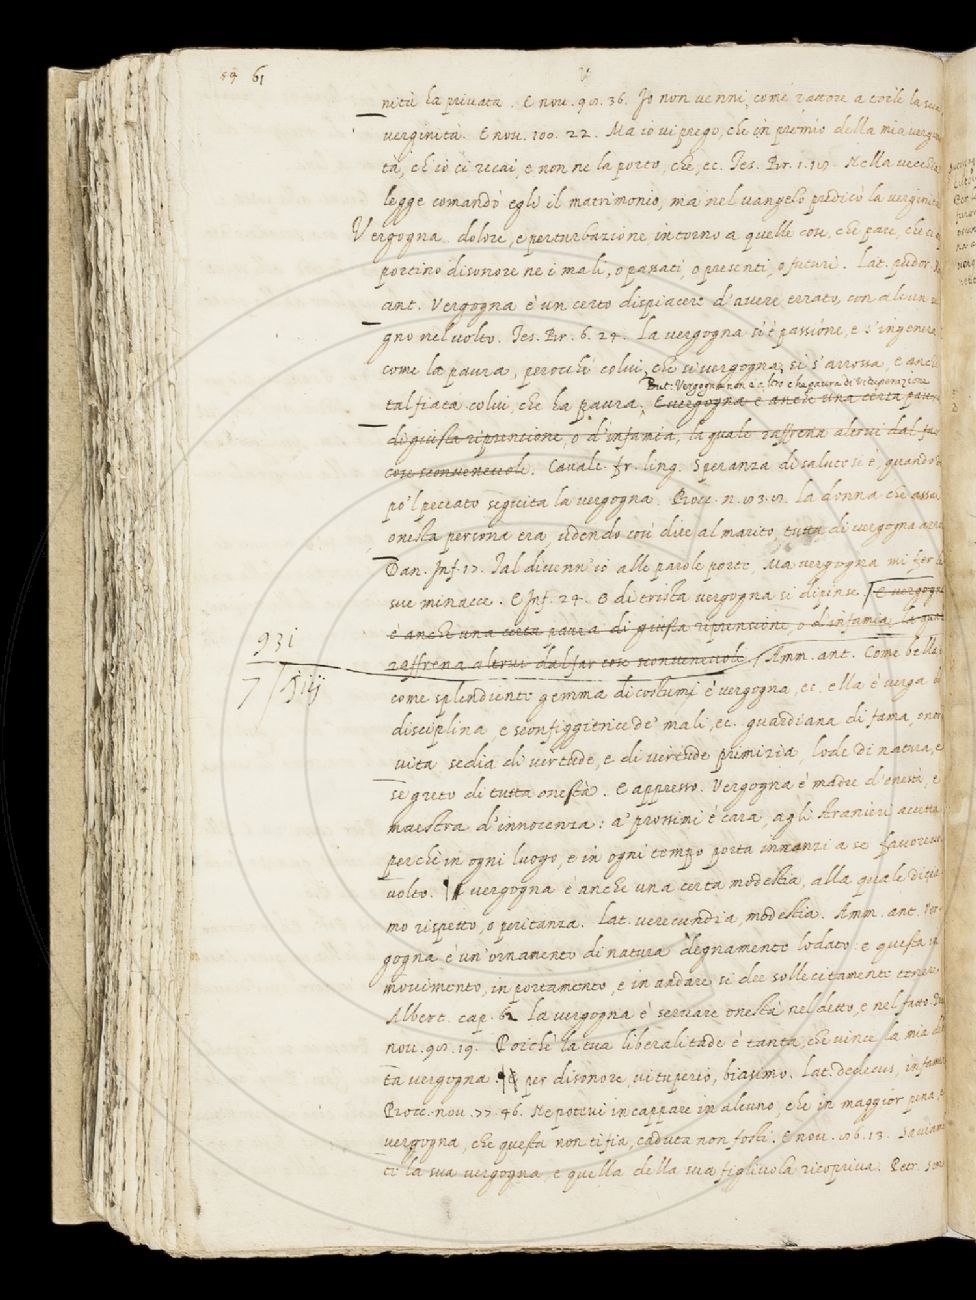 59 61
V
nità ha privata. E nov. 98. 36. Io non venni, come rattore a torle la sua
verginità. E nov. 100. 22. Ma io vi prego, che in premio della mia vergini
tà, ch'io ci recai, e non ne la porto, che, ec. Tes. Br. 1. Nella vecchia
legge comandò egli il matrimonio, ma nel vangelo predicò la verginità
Vergogna dolore, e perturbazione intorno a quelle cose, che pare, che ci ap
portino disonore ne i mali, o passati, o presenti, o futuri. Lat. pudor.
ant. Vergogna è un certo dispiacere d'avere errato, con alcun se
gno nel volto. Tes. Br. 6. 24. La vergogna si è passione, e s'ingenera
come la paura, perocchè colui, che si vergogna, si s'arrossa, e anche
But: Vergogna non è altro che paura di vituperazione
tal fiata colui, che ha paura, E vergogna è anche una certa paura
di giusta riprensione, o d'infamia, la quale raffrena altrui dal far
cose sconvenevoli. Caval. fr. ling. Speranza di salute si è, quando do
po 'l peccato seguita la vergogna. Bocc. n. La donna che assai
onesta persona era, udendo così dire al marito, tutta di vergogna
Dan. Inf. 17. Tal divenn'io alle parole porte, Ma vergogna mi fer le
sue minacce. E Inf. 24. E di trista vergogna si dipinse. E vergogna
è anche una certa paura di giusta riprensione, o d'infamia, la quale
raffrena altrui dal far cose sconvenevoli. Amm. ant. Come bella
come splendiente gemma di costumi è vergogna, ec. ella è verga di
disciplina, e sconfiggitrice de' mali, ec. guardiana di fama, onor di
vita sedia di vertude, e di vertude primizia, lode di natura, e
segreto di tutta onestà. E appresso. Vergogna è madre d'onestà, e
maestra d'innocenza: a' prossimi è cara, agli stranieri accetta
perchè in ogni luogo, e in ogni tempo porta innanzi a se favorevole
volto. vergogna è anche una certa modestia, alla quale dicia
mo rispetto, o peritanza. Lat. verecundia, modestia. Amm. ant. Ver
gogna è un'ornamento di natura degnamente lodato: e questa in
movimento, in portamento, e in andare si dee sollecitamente
Albert. cap. 62 La vergogna è servare onestà nel detto, e nel fatto.
nov. 98. 19. Poichè la tua liberalitade è tanta, che vince la mia
ta vergogna. per disonore, vituperio, biasimo. Lat. dedecus, infamia
Bocc. nov. 77. 46. Ne potevi incappare in alcuno, che in maggior pena,
vergogna, che questa non ti sia, caduta non fossi. E nov. 13.
ti la sua vergogna, e quella della sua figliuola ricopriva. Petr. son